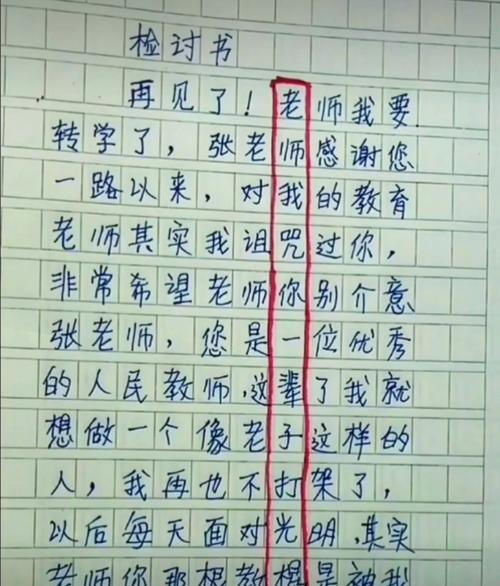 检讨书
再见了！老师我要
转学了，张老师感谢您
一路以来，对我的教育
老师其实我诅咒过你，
非常希望老师你别介意
张老师，您是一位优秀
的人民教师，这辈了我就
想做一个像老子这样的
人，我再也不打架了，
以后每天面对光明，其实
老师你那根教棍是被我